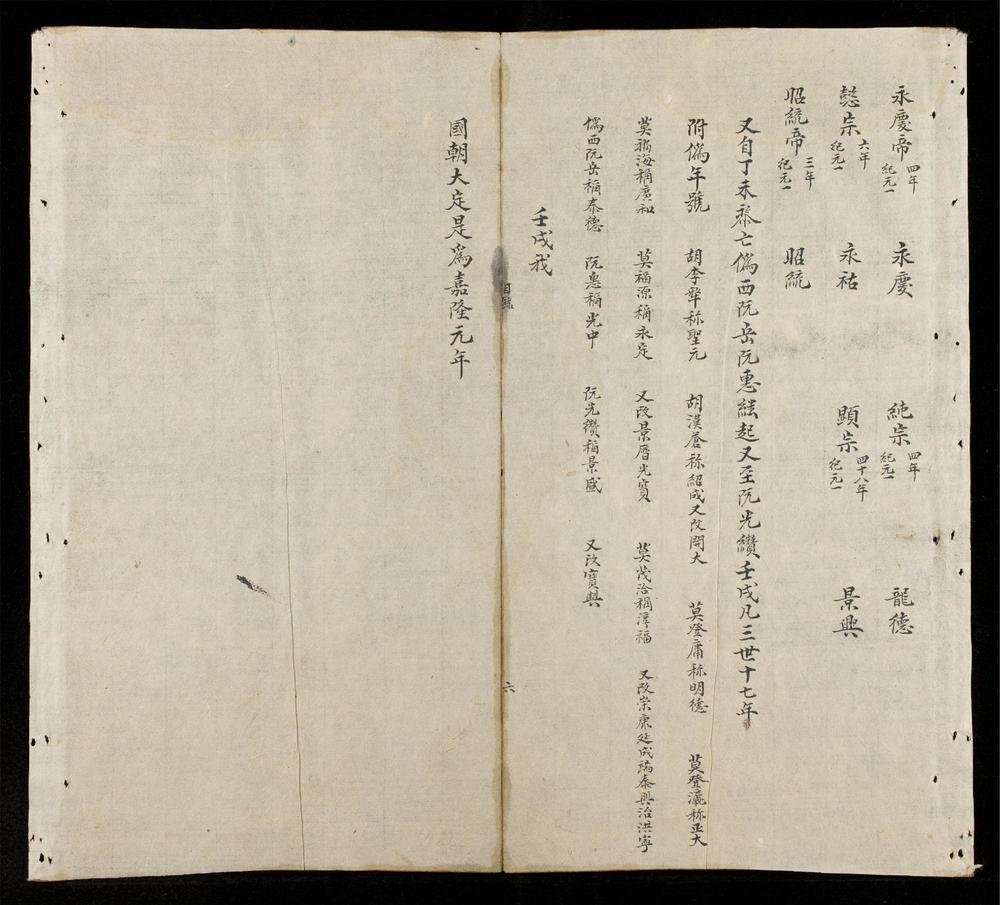 永慶帝 四年 紀元一 永慶 純宗 四年 紀元一 龍德
懿宗 六年 紀元一 永祐 顕宗 四十八年 紀元一 景興
昭統帝 三年 紀元一 昭統
又自丁未黎亡僞西阮岳阮惠継起又至阮光纘壬戌凡三世十七年
附僞年號 胡季犛称聖元 胡漢蒼称紹成又改開大 莫登庸称明德 莫登瀛称正大
莫福海稱廣和 莫福源稱永定 又改景曆光寶 莫茂洽稱淳福 又改崇康延成端泰興治洪寧
僞西阮岳稱泰德 阮惠稱光中 阮光纘稱景盛 又改寶興
壬戌我
六
國朝大定是為嘉隆元年